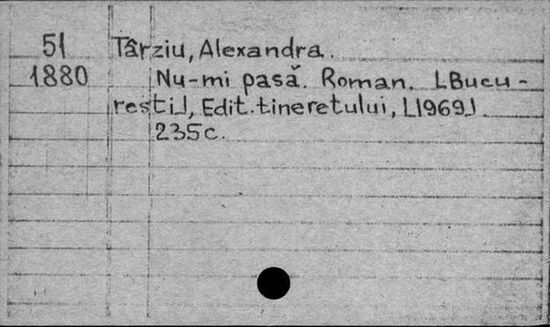 51 Târziu, Alexandra.
1880 Nu-mi pasă. Roman. [Bucu-
rești], Edit. tineretului, [1969].
235c.